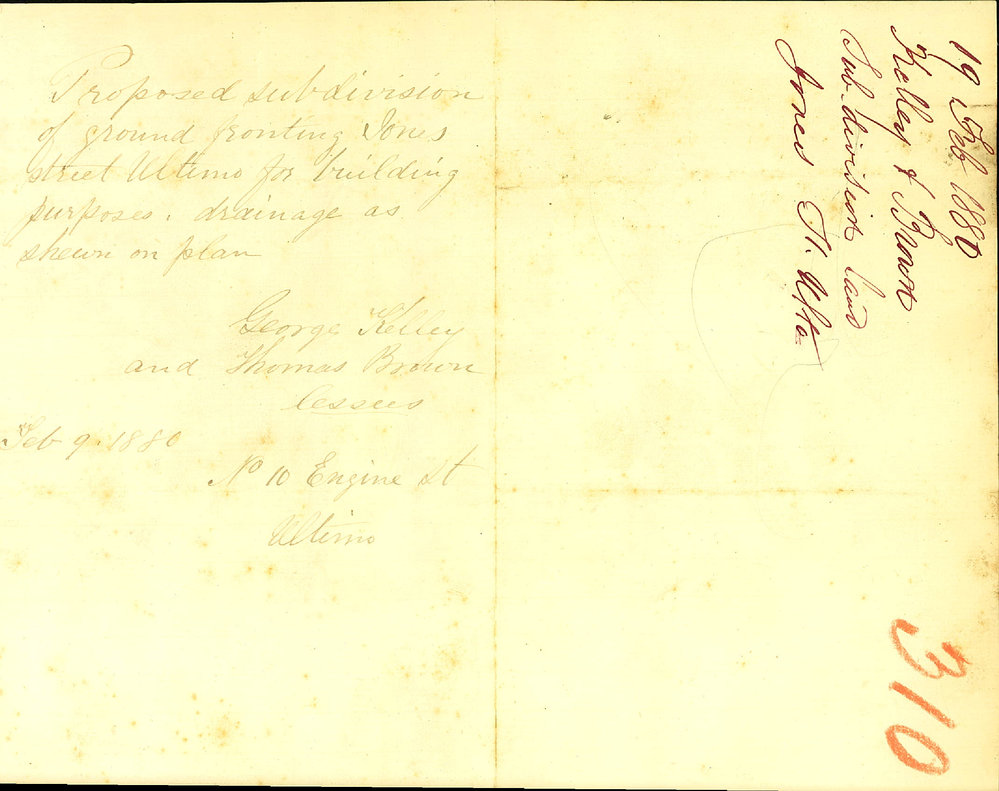 Proposed subdivision
of ground fronting Jones
street Ultimo for building
purposes. drainage as
shewn on plan
George Kelley
and Thomas Brown
lessees
Feb 9. 1880
No 10 Engine St
Ultimo
19 Feb 1880
Kelley & Brown
Sub-division land
Jones St. Ulto
310